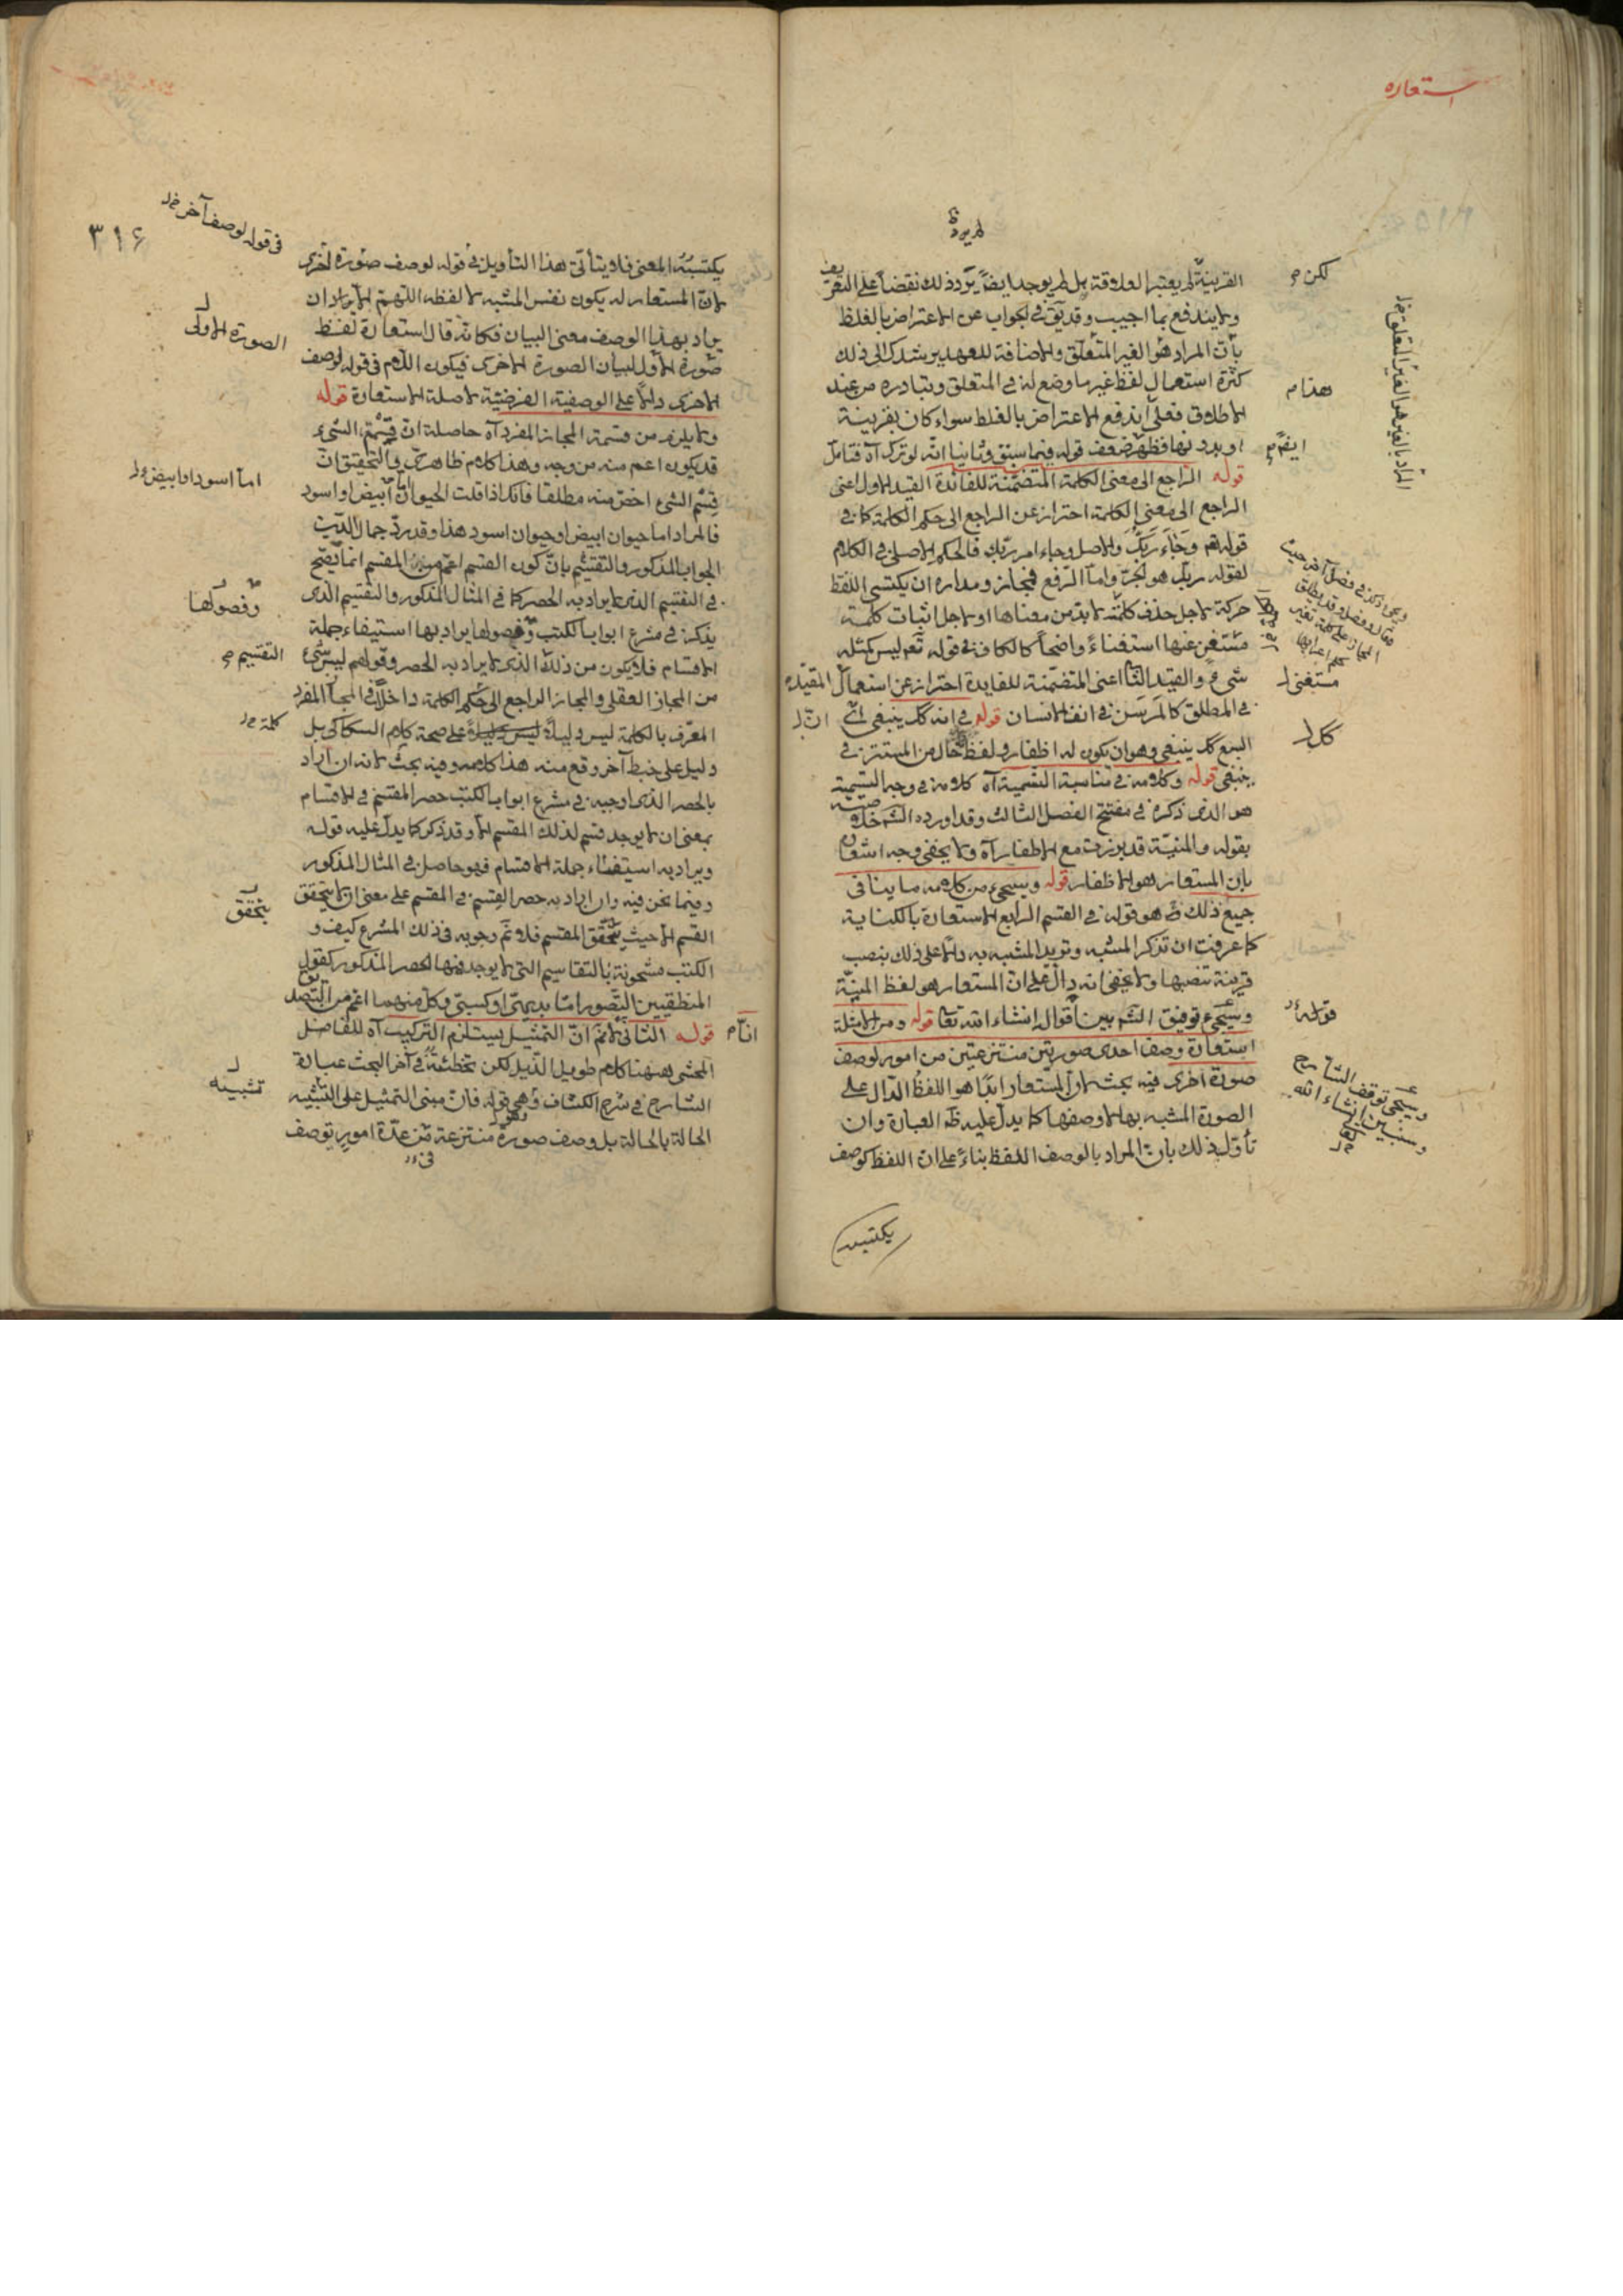 استعاره
لم يرد
القرينة لم يعتبر العلاقة بل لم يوجد ايضا يرد ذلك نقضا على التعريف
ولا يندفع بما اجيب وقد يق في الجواب عن الاعتراض بالغلط
بأن المراد هو الغير المتعلق والاضافة للعهد يرشدك الى ذلك
كثرة استعمال لفظ غير ما وضع له في المتعلق وتبادره من عند
الاطلاق فعلى اندفع الاعتراض بالغلط سواء كان بقرينة
او بدونها فظهر ضعف قوله فيما سبق وثانيا انه لو ترك آه فتأمل
قوله الراجع الى معنى الكلمة المتضمنة للفائدة القيد الاول اعنى
الراجع الى معنى الكلمة احتراز عن الراجع الى حكم الكلمة كما في
قوله تع وجاء ربك والاصل وجاء امر ربك فالحكم الاصلي في الكلام
لقوله ربك هو الجر واما الرفع فمجاز ومداره ان يكتسى اللفظ
حركة لاجل حذف كلمة لا بد من معناها او لاجل اثبات كلمة
مستغنى عنها استغناء واضحا كالكاف في قوله تع ليس كمثله
شيء والقيد الثا اعنى المتضمنة للفايدة احتراز عن استعمال المقيد
في المطلق كالمرسن في انف الانسان قوله في انه كل ينبغى اى
السبع كل ينبغى وهو ان يكون له اظفار ولفظ حال من المستتر في
ينبغى قوله وكلامه في مناسبة التسمية آه كلامه في وجه التسمية
هو الذى ذكره في مفتتح الفصل الثالث وقد اورده الش
بقوله والمنية قد برزت مع الاظفار آه ولا يخفى وجه اشعاره
بان المستعار هو الاظفار قوله وسيجىء من كلامه ما ينافى
جميع ذلك هو قوله في القسم الرابع الاستعارة بالكناية
كما عرفت ان تذكر المشبه وتريد المشبه به دالا على ذلك بنصب
قرينة تنصبها ولا يخفى انه دال على ان المستعار هو لفظ المنية
وسيجىء توفيق الش بين اقواله انشاء الله تعا قوله ومن الامثلة
استعارة وصف احدى صورتين منتزعتين من امور لوصف
صورة اخرى فيه بحث لان المستعار ابدا هو اللفظ الدال على
الصورة المشبه بها لا وصفها كما يدل عليه ظ العبارة وان
تأول ذلك بان المراد بالوصف اللفظ بناء على ان اللفظ كوصف
يكتسبه
لكن م
هذا م
ايضا م
المراد بالغير هو الغير المتعلق
مستغنى
كل
قوله
وسيجىء توفق الشارح
وسنبين انشاء الله
تعا
٣١٦
يكتسبه المعنى فلا يتأتى هذا التأويل في قوله لوصف صورة اخرى
لان المستعار له يكون نفس المشبه لا لفظه اللهم الا يراد ان
يراد بهذا الوصف معنى البيان فكانه قال استعارة لفظ
صورة الاول لبيان الصورة الاخرى فيكون اللام في قوله لوصف
الاخرى دالا على الوصفية الفرضية لا صلة الاستعارة قوله
ولا يلزم من قسمة المجاز المفرد آه حاصله ان قسمة الشىء
قد يكون اعم منه من وجه وهذا كلام ظاهرى والتحقيق ان
قسم الشىء اخص منه مطلقا فانك اذا قلت الحيوان اما ابيض او اسود
فالمراد اما حيوان ابيض او حيوان اسود هذا وقد رد جمال الدين
الجواب المذكور والتقسيم بان كون القسم اعم من المقسم انما يصح
في التقسيم الذى لا يراد به الحصر كما في المثال المذكور والتقسيم الذى
يذكر في مشرع ابواب الكتب وفصولها يراد بها استيفاء جملة
الاقسام فلا يكون من ذلك الذى لا يراد به الحصر وقولهم ليس شىء
من المجاز العقلى والمجاز الراجع الى حكم الكلمة داخلا في المجاز المفرد
المعرف بالكلمة ليس دليلا على صحة كلام السكاكى بل
دليل على خبط آخر وقع منه هذا كلامه وفيه بحث لانه ان اراد
بالحصر الذى اوجبه في مشرع ابواب الكتب حصر المقسم في الاقسام
بمعنى ان لا يوجد قسم لذلك المقسم الا وقد ذكر كما يدل عليه قوله
ويراد به استيفاء جملة الاقسام فهو حاصل في المثال المذكور
وفيما نحن فيه وان اراد به حصر القسم في المقسم على معنى ان لا يتحقق
القسم الا حيث يتحقق المقسم فلا نم وجوبه في ذلك المشرع كيف و
الكتب مشحونة بالتقاسيم التى لا يوجد فيها الحصر المذكور كقول
المنطقيين التصور اما بديهى او كسبى وكل منهما اعم من التصور
قوله الثانى لا نم ان التمثيل يستلزم التركيب آه للفاضل
المحشى ههنا كلام طويل الذيل لكن تخطئة في آخر البحث عبارة
الشارح في شرح الكشاف وهى قوله فان مبنى التمثيل على التشبيه
الحالة بالحالة بل وصف صورة منتزعة من عدة امور بوصف
في قوله لوصف آخر
الصورة الاولى
اما اسود او ابيض
وفصولها
التقسيم م
كلمة
يتحقق
انا م
تشبيه